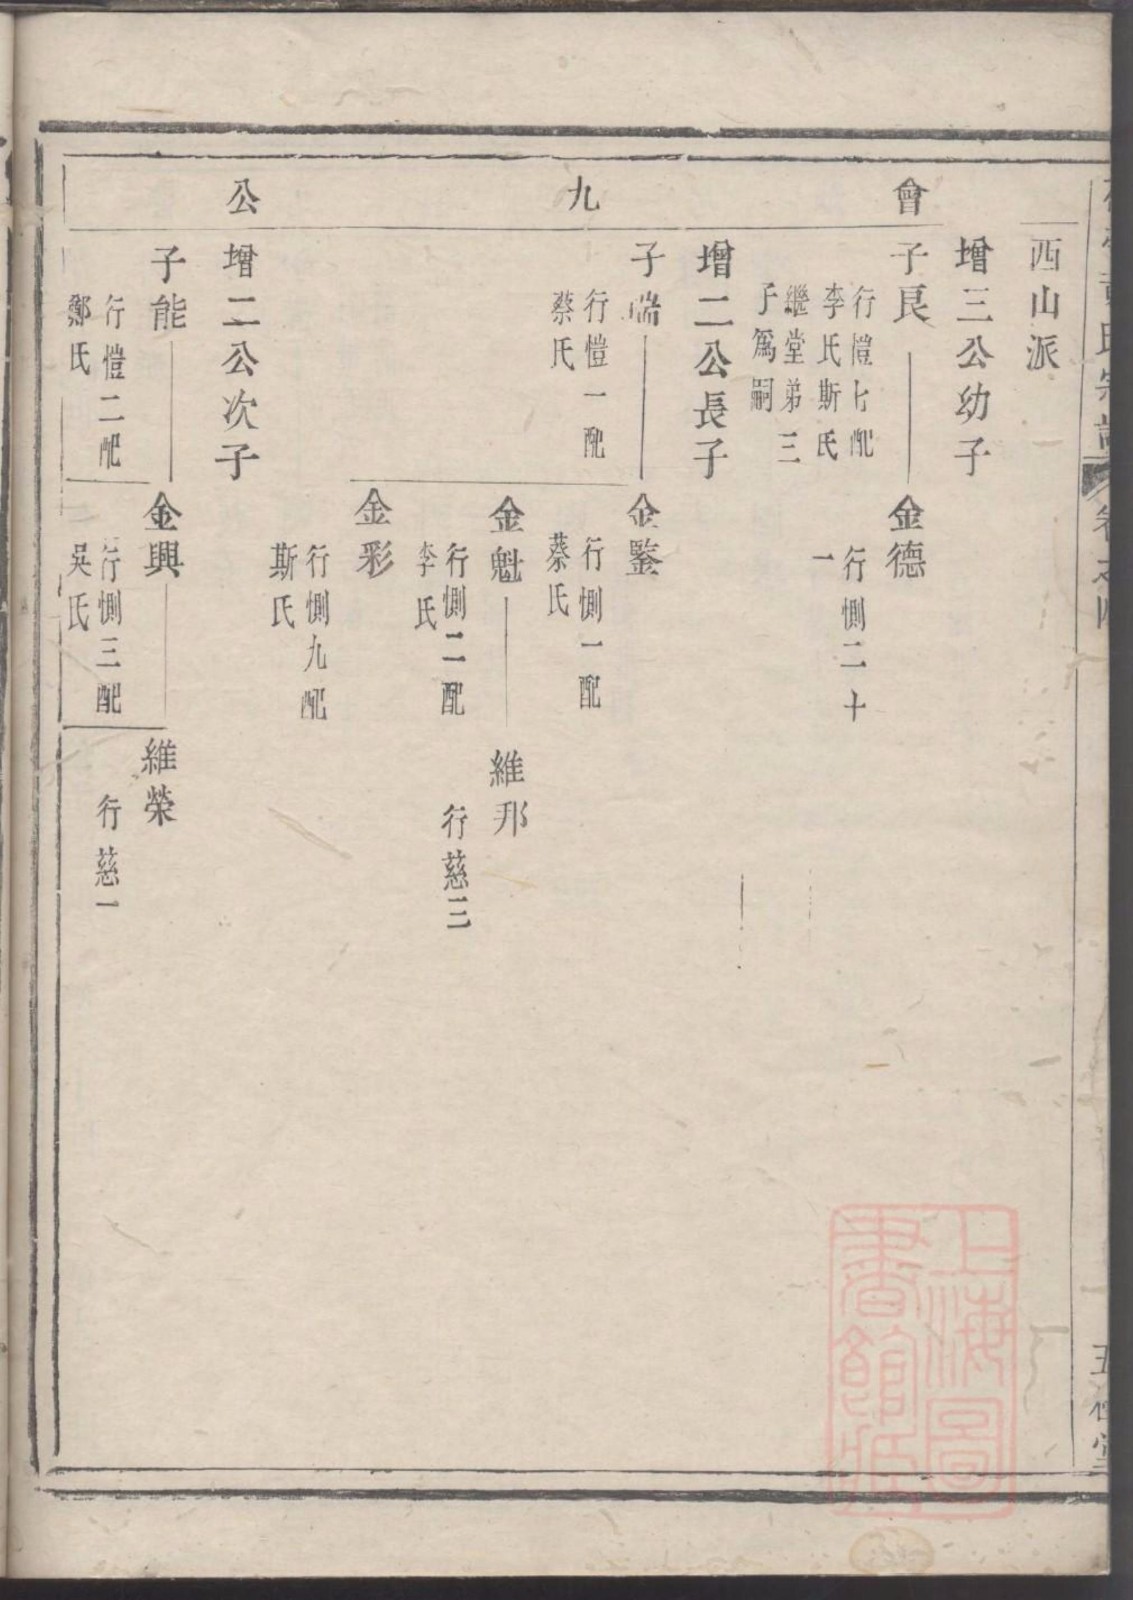 西山派
會九公
增三公幼子
子良
行愷七配
李氏斯氏
繼堂弟三
子為嗣
金德
行惻二十
一
增二公長子
子端
行愷一配
蔡氏
金鑒
行惻一配
蔡氏
金魁
行惻二配
李氏
維邦
行慈三
金彩
行惻九配
斯氏
增二公次子
子能
行愷二配
鄭氏
金興
行惻三配
吳氏
維榮
行慈一
上海圖
書館藏